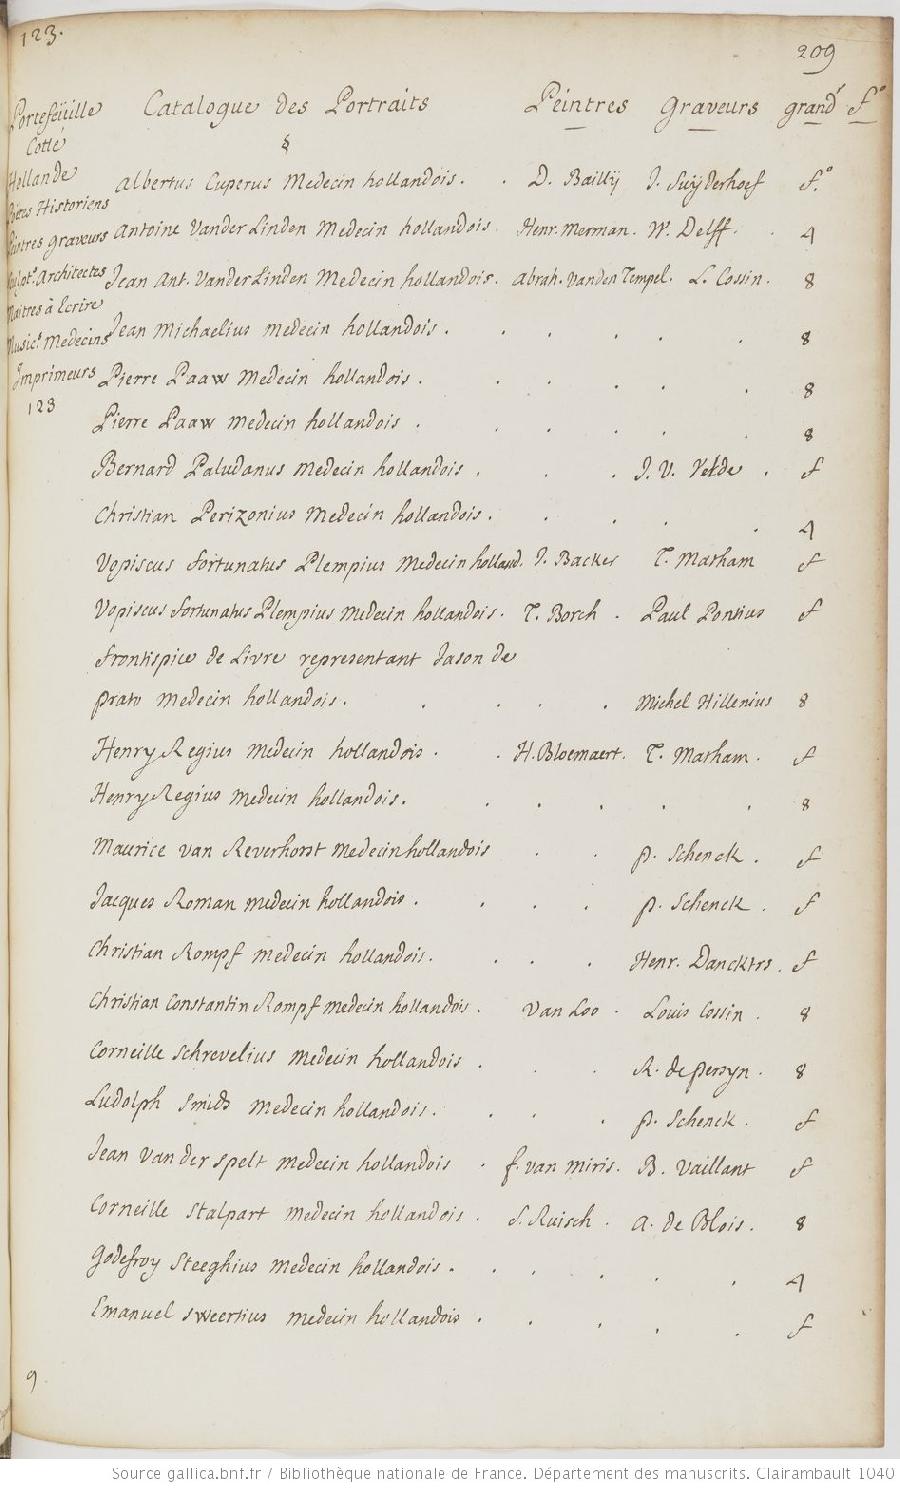 123.
209
Portefeüille Catalogue des Portraits Peintres Graveurs grand^r f^o
Cotté
Hollande Albertus Cuperus Medecin hollandois. D. Baillÿ J. Suÿderhoef f^o.
Poëtes Historiens
Peintres graveurs Antoine VanderLinden Medecin hollandois. Henr. Merman. W. Delff. 4
Sculpt^s. Architectes Jean Ant. VanderLinden Medecin hollandois. Abrah. Vanden Tempel. L. Cossin. 8
Maitres à Ecrire
Music^s. Medecins Jean Michaelius medecin hollandois. 8
Imprimeurs Pierre Paaw Medecin hollandois. 8
123
Pierre Paaw medecin hollandois. 8
Bernard Paludanus medecin hollandois. J. V. Velde. f
Christian Perizonius Medecin hollandois. 4
Vopiscus fortunatus Plempius Medecin holland. J. Backer T. Matham f
Vopiscus fortunatus Plempius Medecin hollandois. T. Borch. Paul Pontius f
Frontispice de Livre representant Jason de
prato medecin hollandois. Michel Hillenius 8
Henry Regius medecin hollandois. H. Bloemaert. T. Matham. f
Henry Regius medecin hollandois. 8
Maurice van Reverhorst medecin hollandois p. Schenck. f
Jacques Roman medecin hollandois. p. Schenck. f
Christian Rompf medecin hollandois. Henr. Dancktrs. f
Christian Constantin Rompf medecin hollandois. Van Loo. Louis Cossin. 8
Corneille Schrevelius medecin hollandois. R. de persyn. 8
Ludolph Smids medecin hollandois. p. Schenck. f
Jean Van der spelt medecin hollandois. f. van miris. B. Vaillant f
Corneille Stalpart medecin hollandois. S. Ruisch. a. de Blois. 8
Godefroy Steeghius medecin hollandois. 4
Emanuel sweertius medecin hollandois. f
9
Source gallica.bnf.fr / Bibliothèque nationale de France. Département des manuscrits. Clairambault 1040